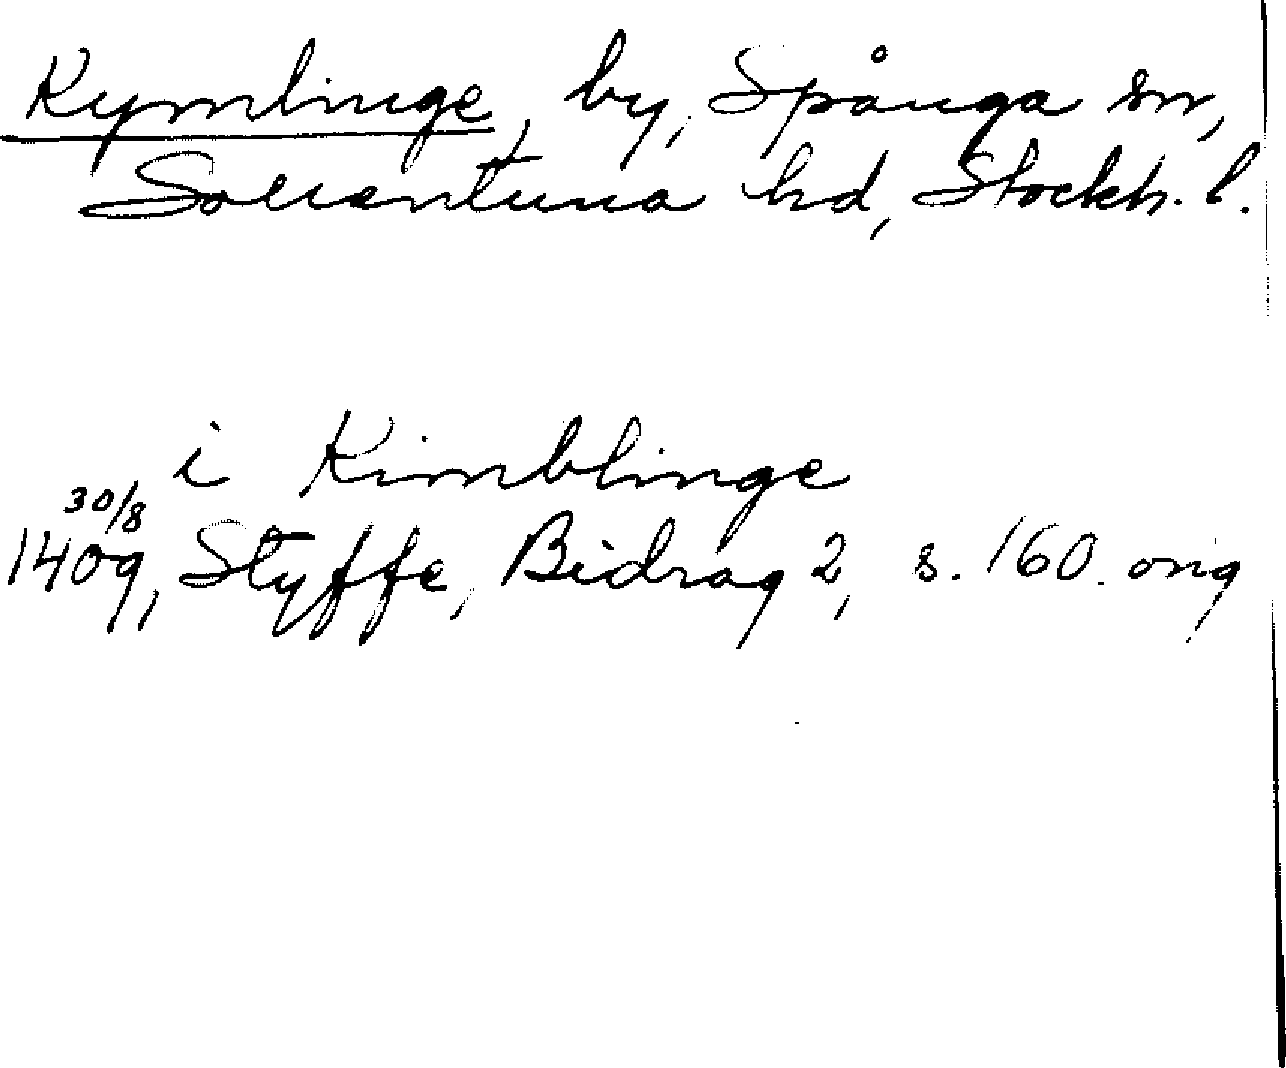 Kymlinge, by, Spånga sn,
Sollentuna hd, Stockh. l.
i Kimblinge
30/8
1409, Styffe, Bidrag 2, s. 160. orig